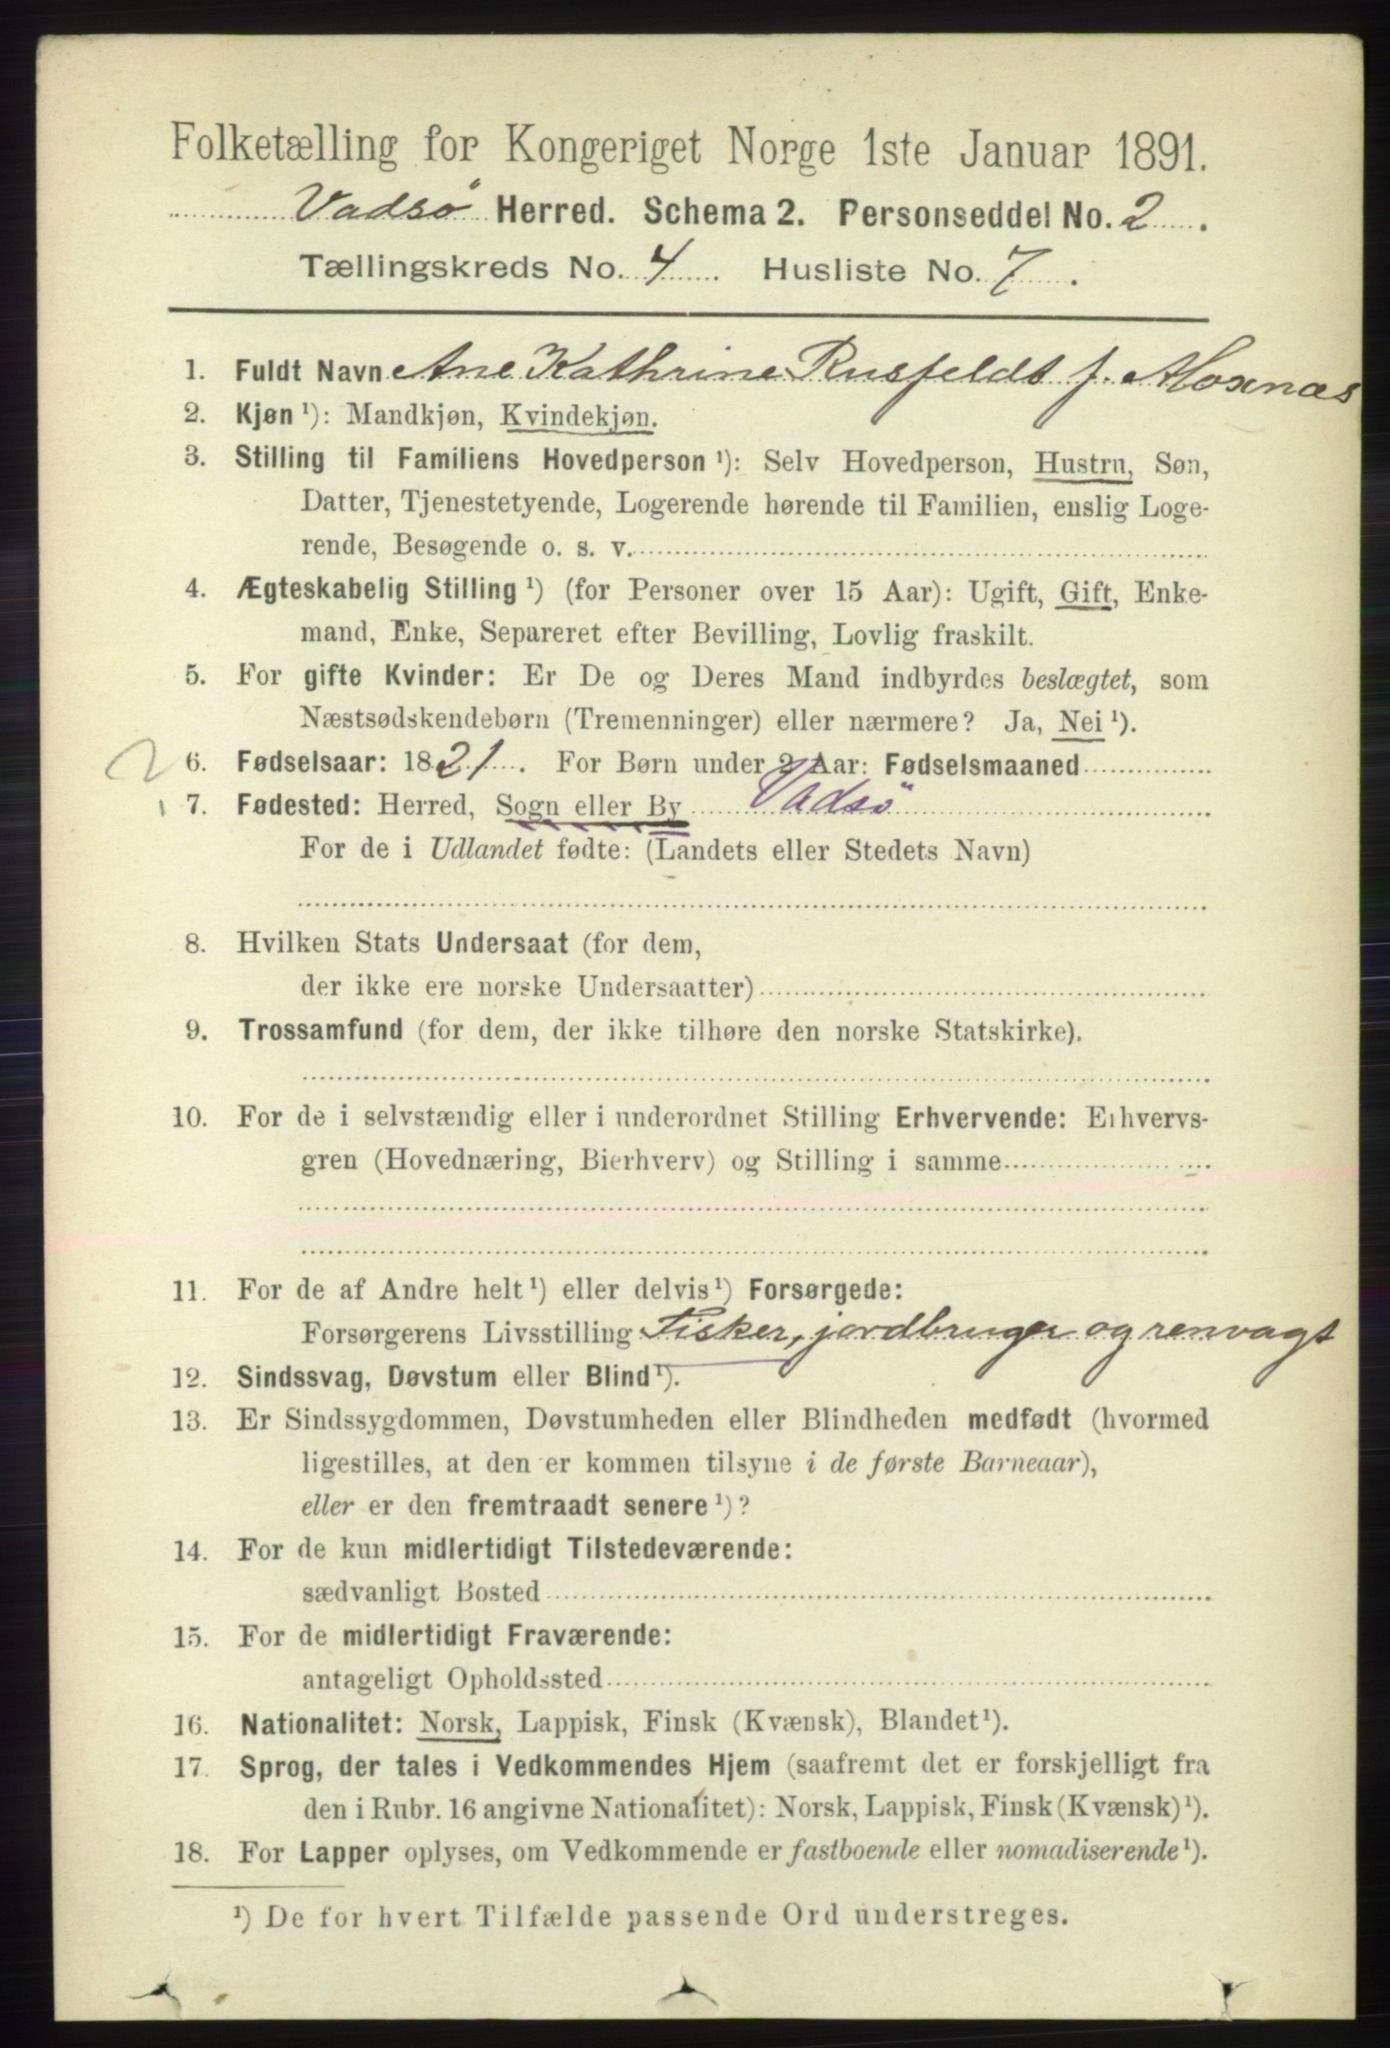 Folketælling for Kongeriget Norge 1ste Januar 1891.
Vadsø Herred. Schema 2. Personseddel No. 2.
Tællingskreds No. 4 Husliste No. 7.
1. Fuldt Navn Ane Kathrine Rusfeldt f. Moxnæs
2. Kjøn ¹): Mandkjøn, Kvindekjøn.
3. Stilling til Familiens Hovedperson ¹): Selv Hovedperson, Hustru, Søn,
Datter, Tjenestetyende, Logerende hørende til Familien, enslig Loge-
rende, Besøgende o. s. v.
4. Ægteskabelig Stilling ¹) (for Personer over 15 Aar): Ugift, Gift, Enke-
mand, Enke, Separeret efter Bevilling, Lovlig fraskilt.
5. For gifte Kvinder: Er De og Deres Mand indbyrdes beslægtet, som
Næstsødskendebørn (Tremenninger) eller nærmere? Ja, Nei ¹).
6. Fødselsaar: 1821. For Børn under 2 Aar: Fødselsmaaned
7. Fødested: Herred, Sogn eller By Vadsø
For de i Udlandet fødte: (Landets eller Stedets Navn)
8. Hvilken Stats Undersaat (for dem,
der ikke ere norske Undersaatter)
9. Trossamfund (for dem, der ikke tilhøre den norske Statskirke).
10. For de i selvstændig eller i underordnet Stilling Erhvervende: Erhvervs-
gren (Hovednæring, Bierhverv) og Stilling i samme
11. For de af Andre helt ¹) eller delvis ¹) Forsørgede:
Forsørgerens Livsstilling Fisker, jordbruger og renvagt
12. Sindssvag, Døvstum eller Blind ¹).
13. Er Sindssygdommen, Døvstumheden eller Blindheden medfødt (hvormed
ligestilles, at den er kommen tilsyne i de første Barneaar),
eller er den fremtraadt senere ¹)?
14. For de kun midlertidigt Tilstedeværende:
sædvanligt Bosted
15. For de midlertidigt Fraværende:
antageligt Opholdssted
16. Nationalitet: Norsk, Lappisk, Finsk (Kvænsk), Blandet ¹).
17. Sprog, der tales i Vedkommendes Hjem (saafremt det er forskjelligt fra
den i Rubr. 16 angivne Nationalitet): Norsk, Lappisk, Finsk (Kvænsk) ¹).
18. For Lapper oplyses, om Vedkommende er fastboende eller nomadiserende ¹).
¹) De for hvert Tilfælde passende Ord understreges.